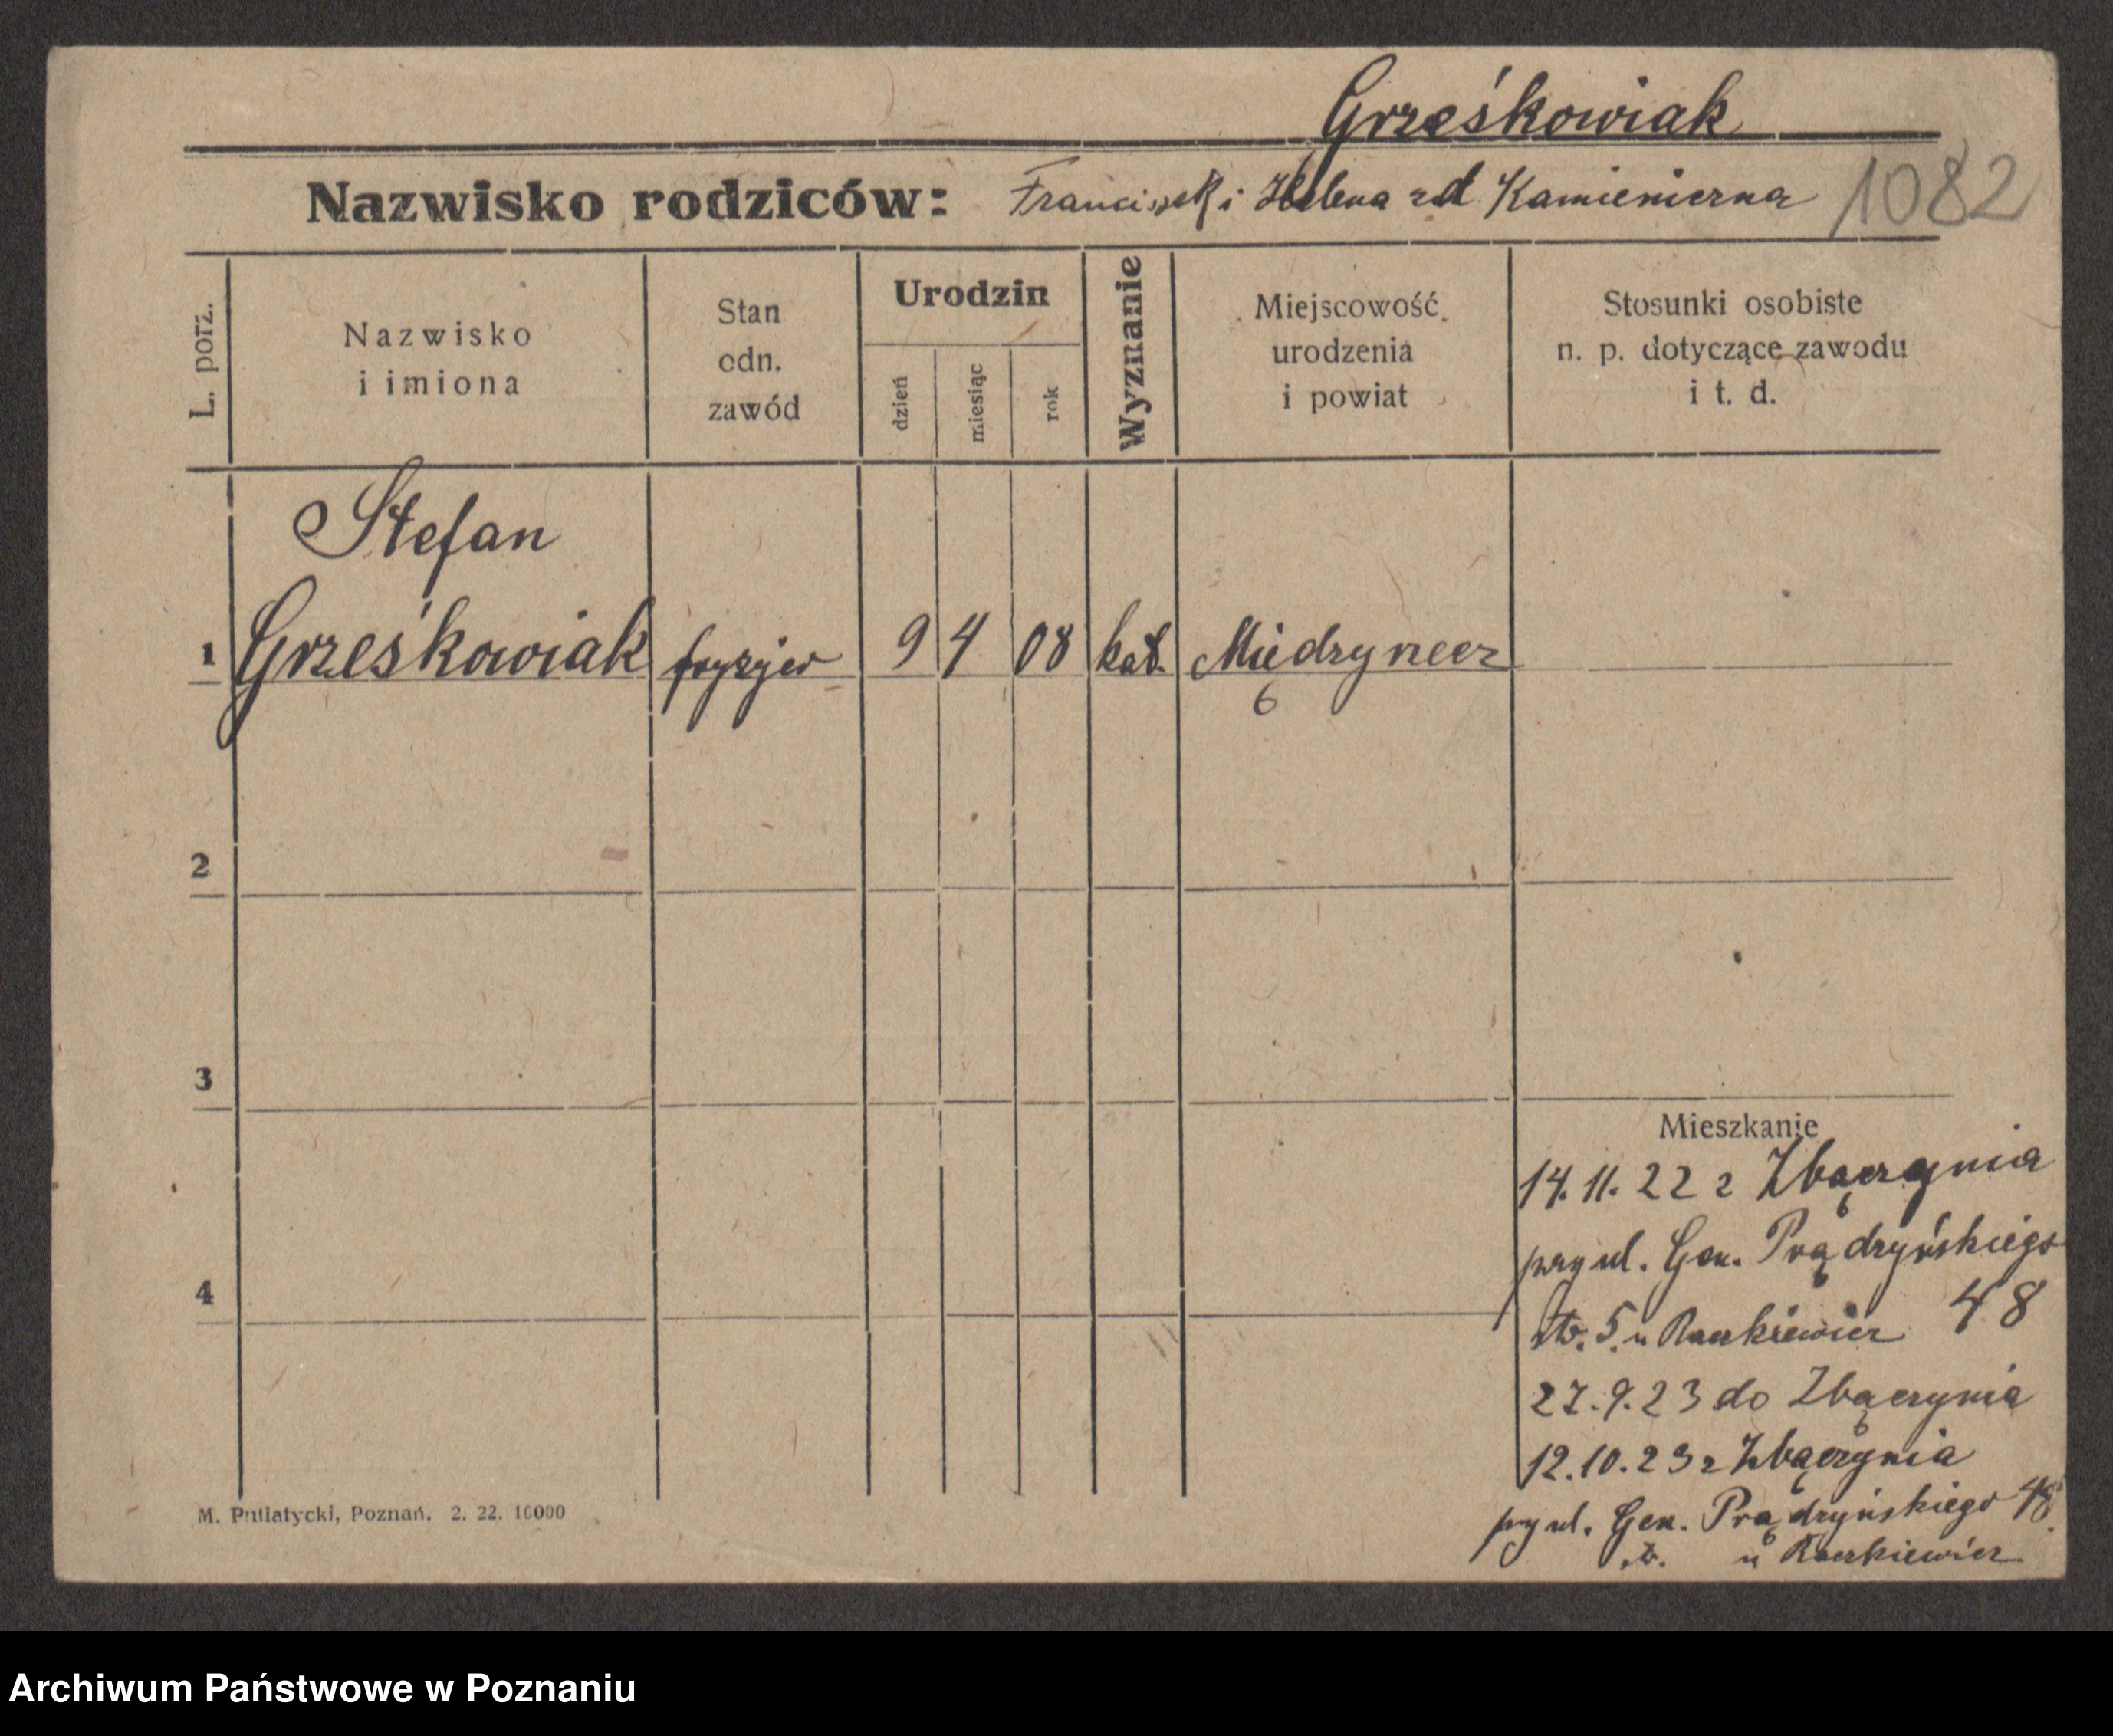 Grześkowiak
Nazwisko rodziców: Franciszek i Helena zd Kamienierna 1082
L. porz.
Nazwisko
i imiona
Stan
odn.
zawód
Urodzin
dzień
miesiąc
rok
Wyznanie
Miejscowość
urodzenia
i powiat
Stosunki osobiste
n. p. dotyczące zawodu
i t. d.
Stefan
1 Grześkowiak fryzjer 9 4 08 kat. Międzyrzecz
2
3
4
Mieszkanie
14. 11. 22 z Zbączynia
przy ul. Gen. Prądzyńskiego
48
5. u Raczkiewicz
27. 9. 23 do Zbączynia
12. 10. 23 z Zbączynia
przy ul. Gen. Prądzyńskiego 48
u Raczkiewicz
M. Putiatycki, Poznań. 2. 22. 10000
Archiwum Państwowe w Poznaniu